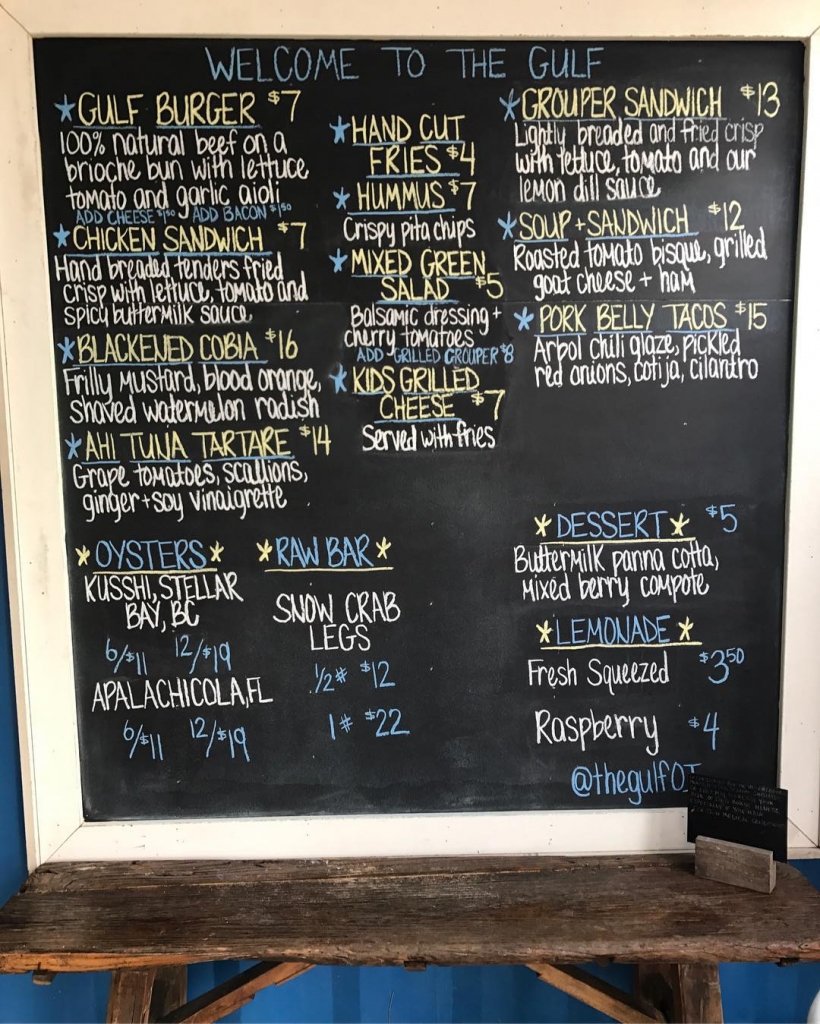 WELCOME TO THE GULF
GULF BURGER $7
100% natural beef on a
brioche bun with lettuce
tomato and garlic aioli
ADD CHEESE $1.50 ADD BACON $1.50
CHICKEN SANDWICH $7
Hand breaded tenders fried
crisp with lettuce, tomato and
spicy buttermilk sauce
BLACKENED COBIA $16
Frilly Mustard, blood orange,
shaved watermelon radish
AHI TUNA TARTARE $14
Grape tomatoes, scallions,
ginger + soy vinaigrette
HAND CUT
FRIES $4
HUMMUS $7
Crispy pita chips
MIXED GREEN
SALAD $5
Balsamic dressing +
cherry tomatoes
ADD GRILLED GROUPER $8
KIDS GRILLED
CHEESE $7
Served with fries
GROUPER SANDWICH $13
Lightly breaded and fried crisp
with lettuce, tomato and our
lemon dill sauce
SOUP + SANDWICH $12
Roasted tomato bisque, grilled
goat cheese + ham
PORK BELLY TACOS $15
Arbol chili glaze, pickled
red onions, cotija, cilantro
OYSTERS
KUSSHI, STELLAR
BAY, BC
6/$11 12/$19
APALACHICOLA, FL
6/$11 12/$19
RAW BAR
SNOW CRAB
LEGS
1/2# $12
1# $22
DESSERT $5
Buttermilk panna cotta,
Mixed berry compote
LEMONADE
Fresh Squeezed $3.50
Raspberry $4
@thegulfOI